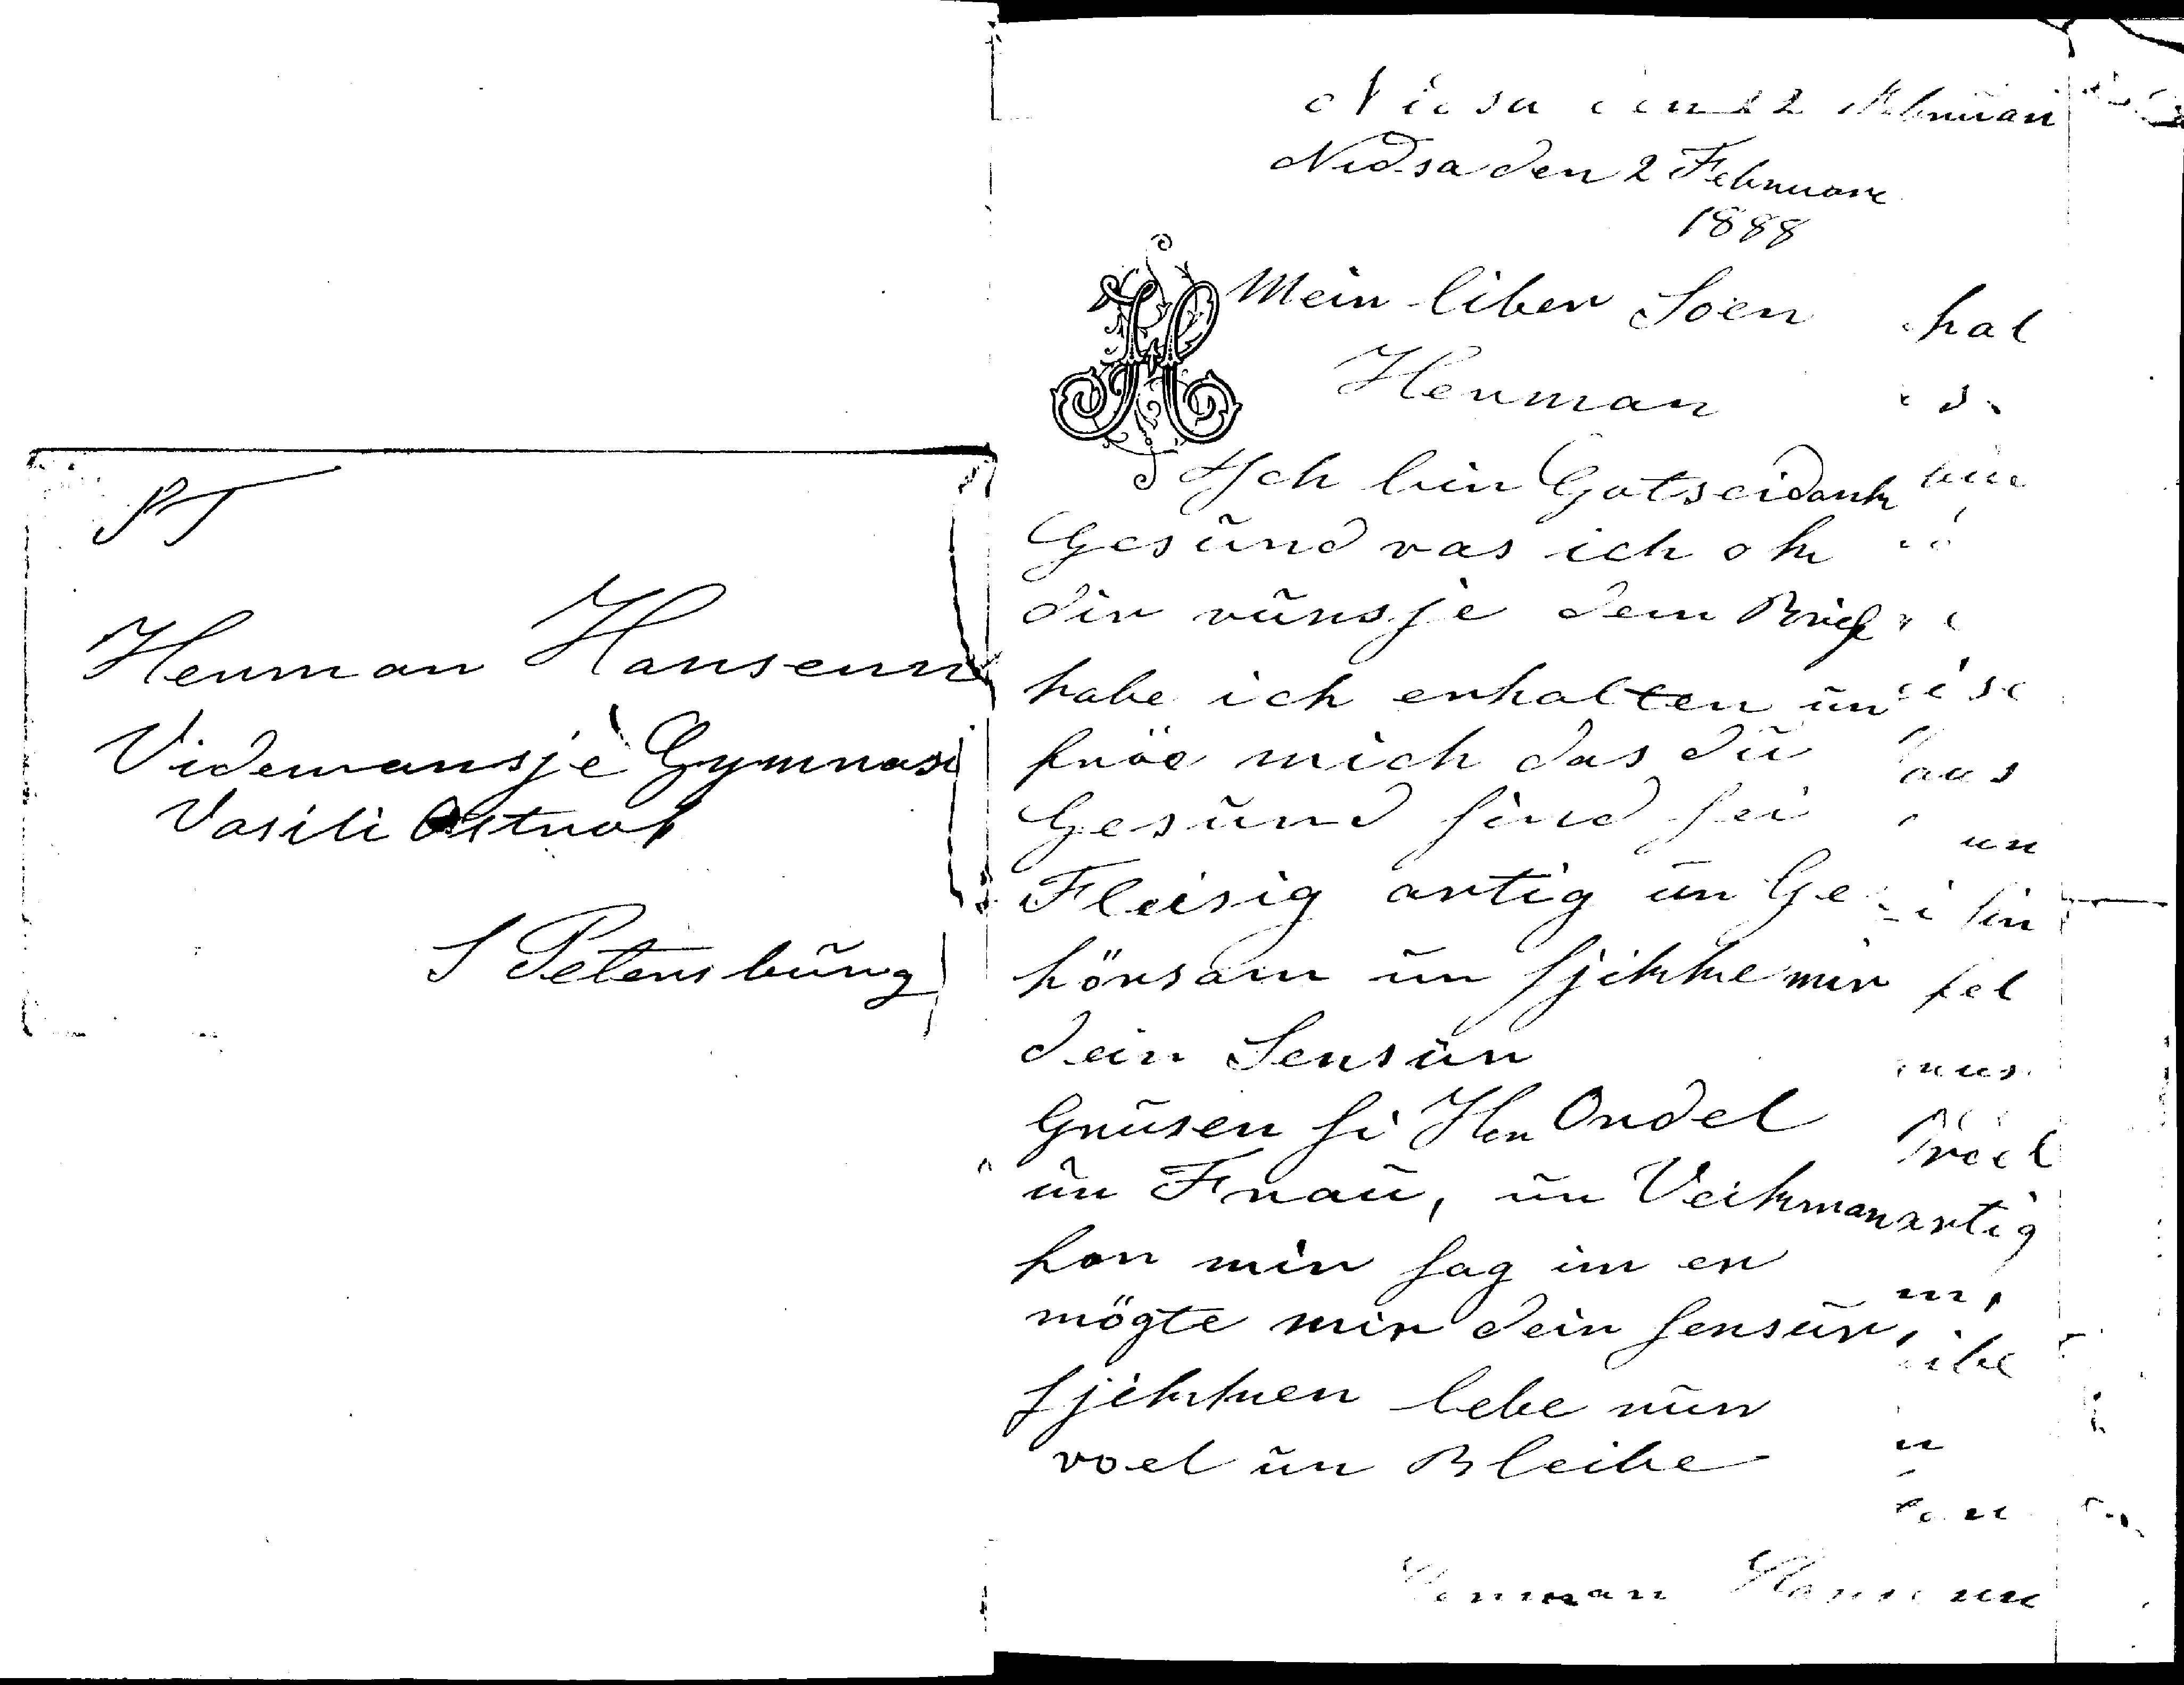 PT
Herman Hansenn
Videmansje Gymnasi
Vasili Ostrof
S Petersbūrg
Nidsa den 2 Februare
1888
H
Mein liber Soen
Herman
Ich bin Gotseidank
Gesūnd vas ich ok
dir vūnsje dein Brief
habe ich erhalten ūn
fröe mich das dū
Gesūnd sind sei
Fleisig artig ūn Ge
hörsam ūn sjikke mir
dein Sensūr
Grūsen si Her Ondel
ūn Fraū, ūn Veikman
fon mir sag im er
mögte mir dein sensūr,
sjikken lebe nūr
voel ūn Bleibe
hal
aus
un
fel
artig